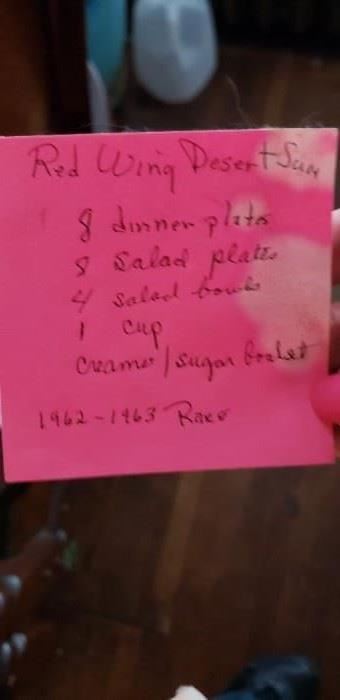 Red Wing Desert Sun
8 dinner plates
8 salad plates
4 salad bowls
1 cup
creamer/sugar
1962-1963 Rare